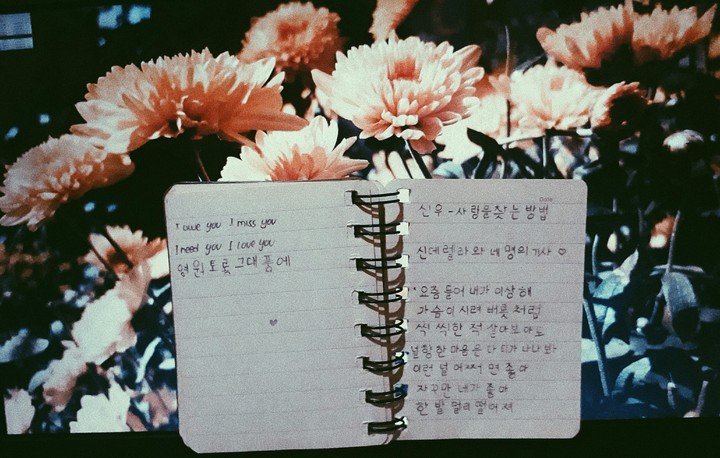 I owe you I miss you
I need you I love you
영원토록 그대 품에
Date
신우 - 사랑을 찾는 방법
신데렐라와 네 명의 기사 ♡
요즘 들어 내가 이상해
가슴이 시려 버릇처럼
씩씩한 척 살아보아도
널 향한 마음은 다 티가 나나 봐
이런 널 어쩌면 좋아
자꾸만 네가 좋아
한 발 멀리 떨어져